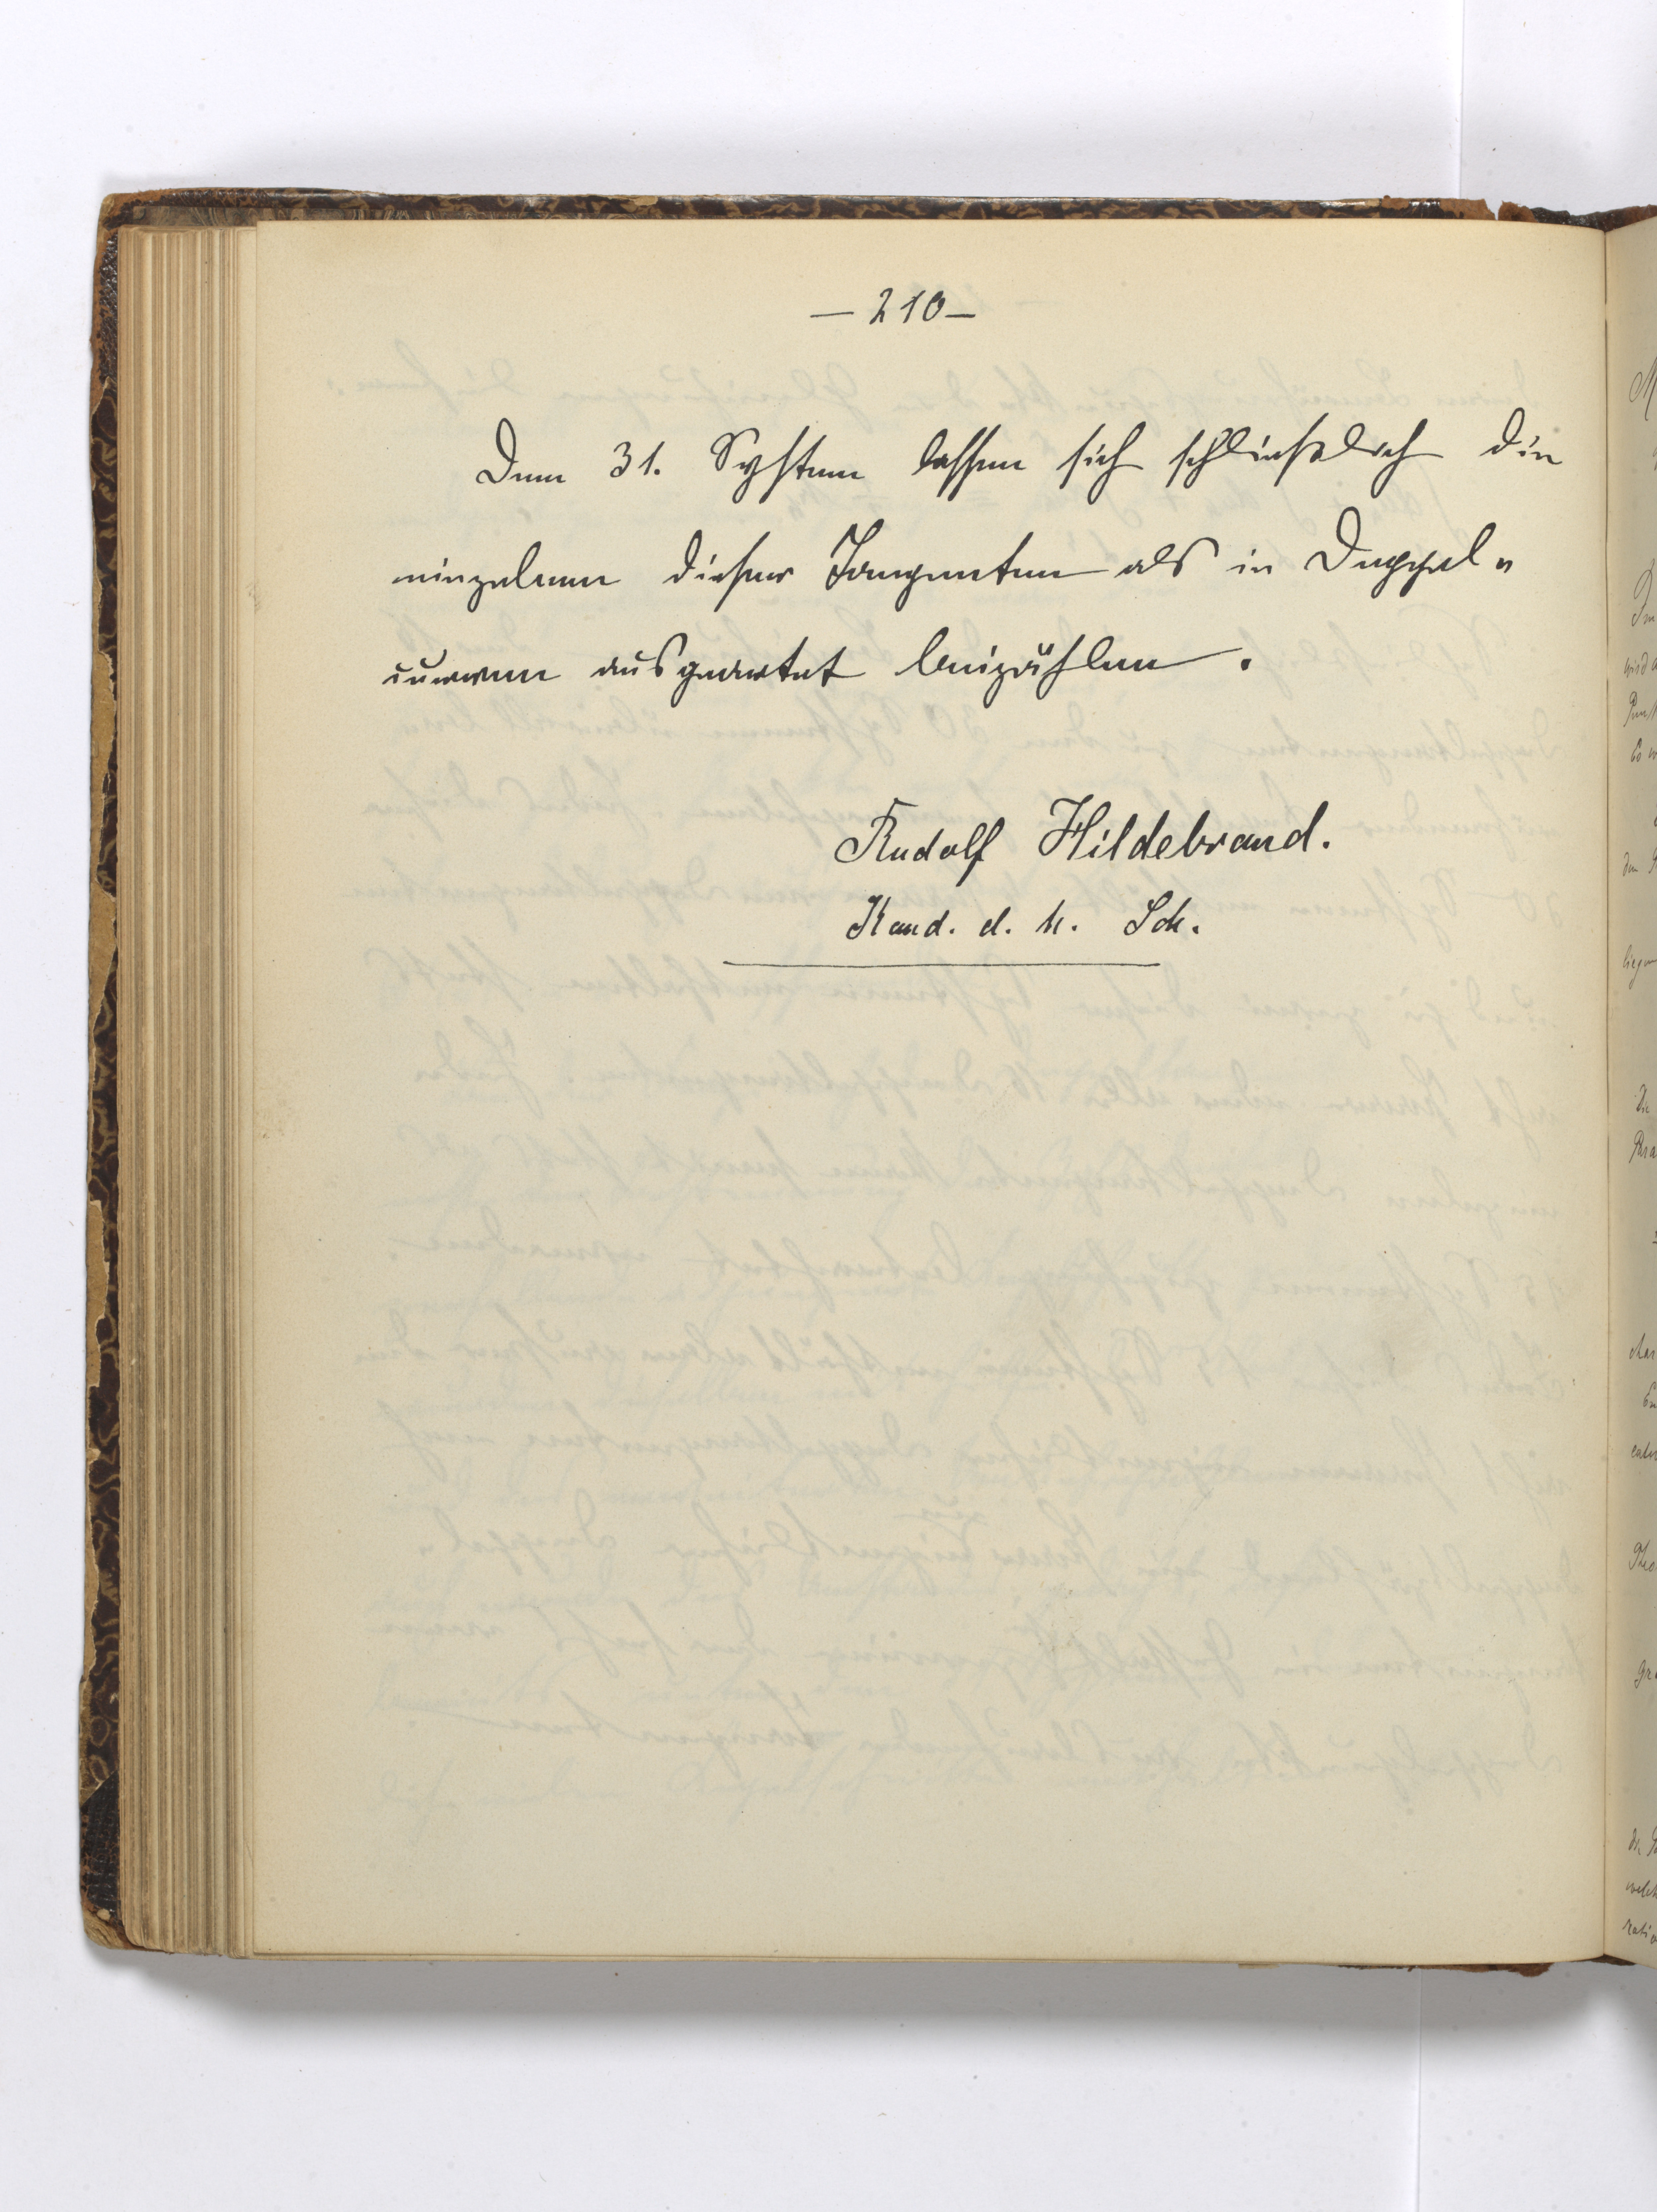 — 210 —
Dem 31. System lassen sich schließlich die
einzelnen dieser Tangenten als in Doppel-
curven ausgeartet beizählen.
Rudolf Hildebrand.
Kand. d. h. Sch.